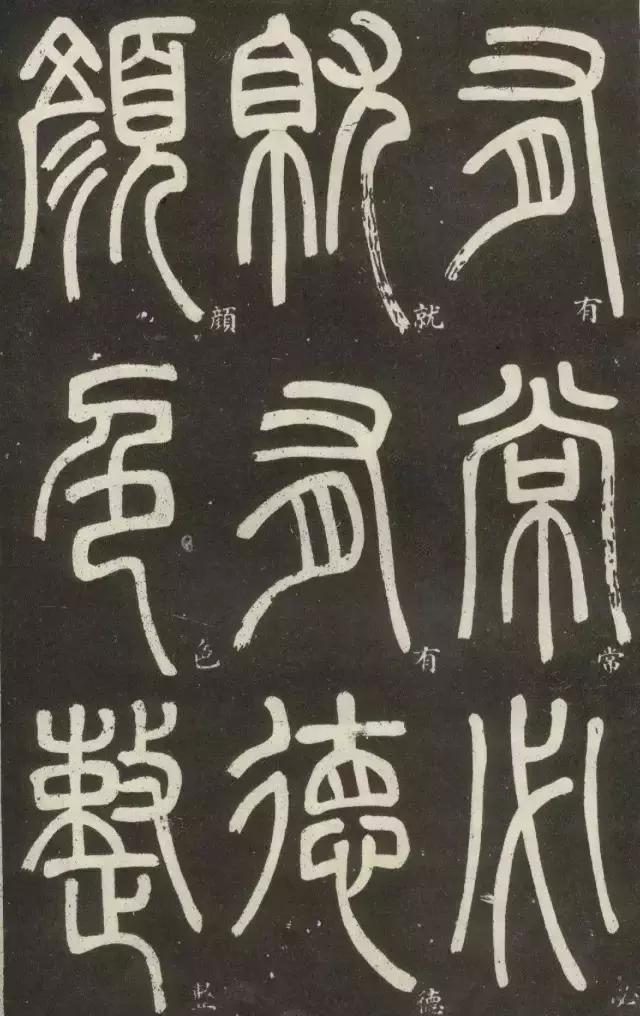 有常必
有常必
就有德
就有德
顏色整
顔色整